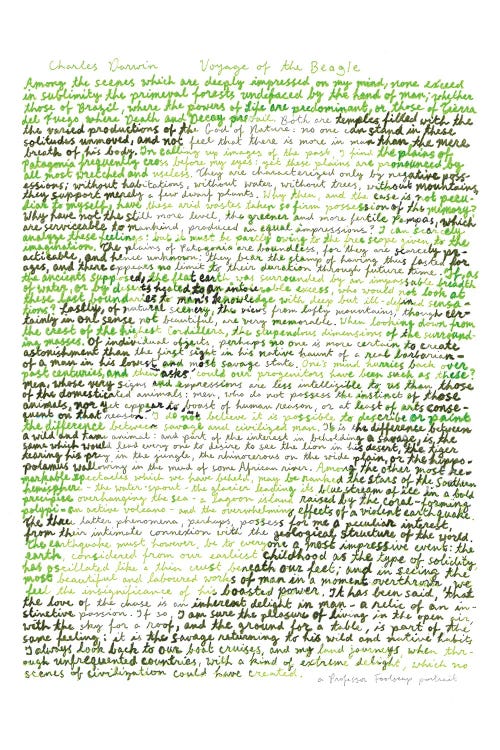 Charles Darwin Voyage of the Beagle
Among the scenes which are deeply impressed on my mind, none exceed
in sublimity the primeval forests undefaced by the hand of man; whether
those of Brazil, where the powers of Life are predominant, or those of Tierra
del Fuego, where Death and Decay prevail. Both are temples filled with the
the varied productions of the God of Nature: no one can stand in these
solitudes unmoved, and not feel that there is more in man than the mere
breath of his body. In calling up images of the past, I find the plains of
Patagonia frequently cross before my eyes; yet these plains are pronounced by
all most wretched and useless. They are characterized only by negative poss-
essions; without habitations, without water, without trees, without mountains,
they support merely a few dwarf plants. Why then, and the case is not pecu-
liar to myself, have these arid wastes taken so firm possession of the memory?
Why have not the still more level, the greener and more fertile Pampas, which
are serviceable to mankind, produced an equal impression? I can scarcely
analyse these feelings: but it must be partly owing to the free scope given to the
imagination. The plains of Patagonia are boundless, for they are scarcely pr-
acticable, and hence unknown: they bear the stamp of having thus lasted for
ages, and there appears no limit to their duration through future time. If, as
the ancients supposed, the flat earth was surrounded by an impassable breadth
of water, or by deserts heated to an intolerable excess, who would not look at
these last boundaries to man's knowledge with deep but ill-defined sensa-
tions. Lastly, of natural scenery, the views from lofty mountains, though cer-
tainly in one sense not beautiful, are very memorable. When looking down from
the crest of the highest Cordillera, the stupendous dimensions of the surround-
ing masses. Of individual objects, perhaps no one is more certain to create
astonishment than the first sight in his native haunt of a real barbarian -
of a man in his lowest and most savage state. One's mind hurries back over
past centuries, and then asks could our progenitors have been such as these?
men, whose very signs and expressions are less intelligible to us than those
of the domesticated animals; men, who do not possess the instinct of those
animals, nor yet appear to boast of human reason, or at least of arts conse-
quent on that reason. I do not believe it is possible to describe or paint
the difference between savage and civilized man. It is the difference between
a wild and tame animal: and part of the interest in beholding a savage, is the
same which would lead every one to desire to see the lion in his desert, the tiger
tearing his prey in the jungle, the rhinoceros on the wide plain, or the hippo-
potamus wallowing in the mud of some African river. Among the other most re-
markable spectacles which we have beheld, may be ranked the stars of the Southern
hemisphere - the water-spout - the glacier leading its blue stream of ice in a bold
precipice overhanging the sea - a lagoon island raised by the coral-forming
polypi - an active volcano - and the overwhelming effects of a violent earthquake.
The these latter phenomena, perhaps, possess for me a peculiar interest,
from their intimate connexion with the geological structure of the world.
The earthquake must however be to everyone a most impressive event: the
earth, considered from our earliest childhood as the type of solidity,
has oscillated like a thin crust beneath our feet; and in seeing the
most beautiful and laboured works of man in a moment overthrown, we
feel the insignificance of his boasted power. It has been said, that
the love of the chase is an inherent delight in man - a relic of an in-
stinctive passion. If so, I am sure the pleasure of living in the open air,
with the sky for a roof, and the ground for a table, is part of the
same feeling; it is the savage returning to his wild and native habits
I always look back to our boat cruises, and my land journeys, when thr-
ough unfrequented countries, with a kind of extreme delight, which no
scenes of civilization could have created.
a Professor Foolscap portrait